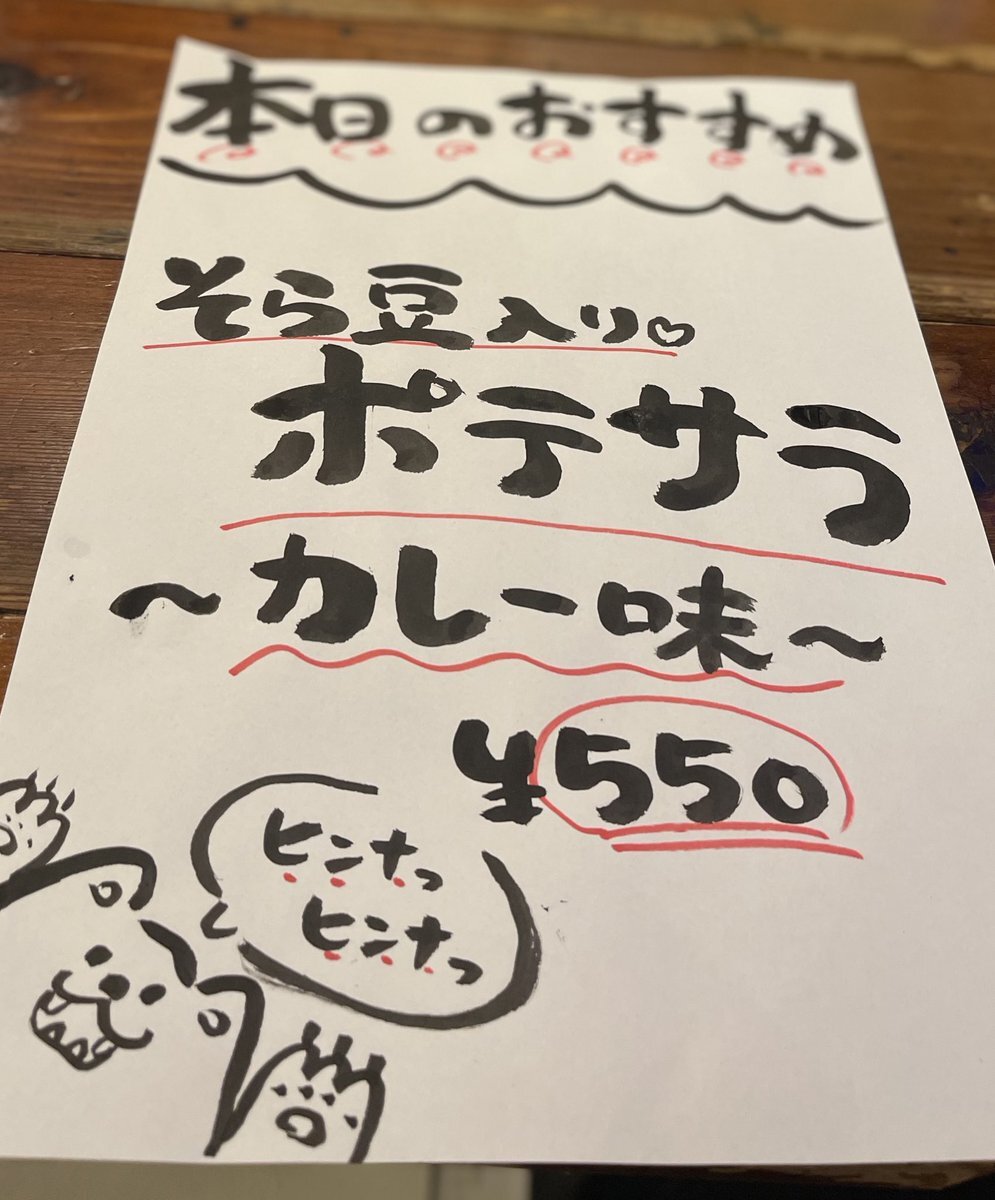 本日のおすすめ
そら豆入り♡
ポテサラ
〜カレー味〜
¥550
ヒンナっ
ヒンナっ